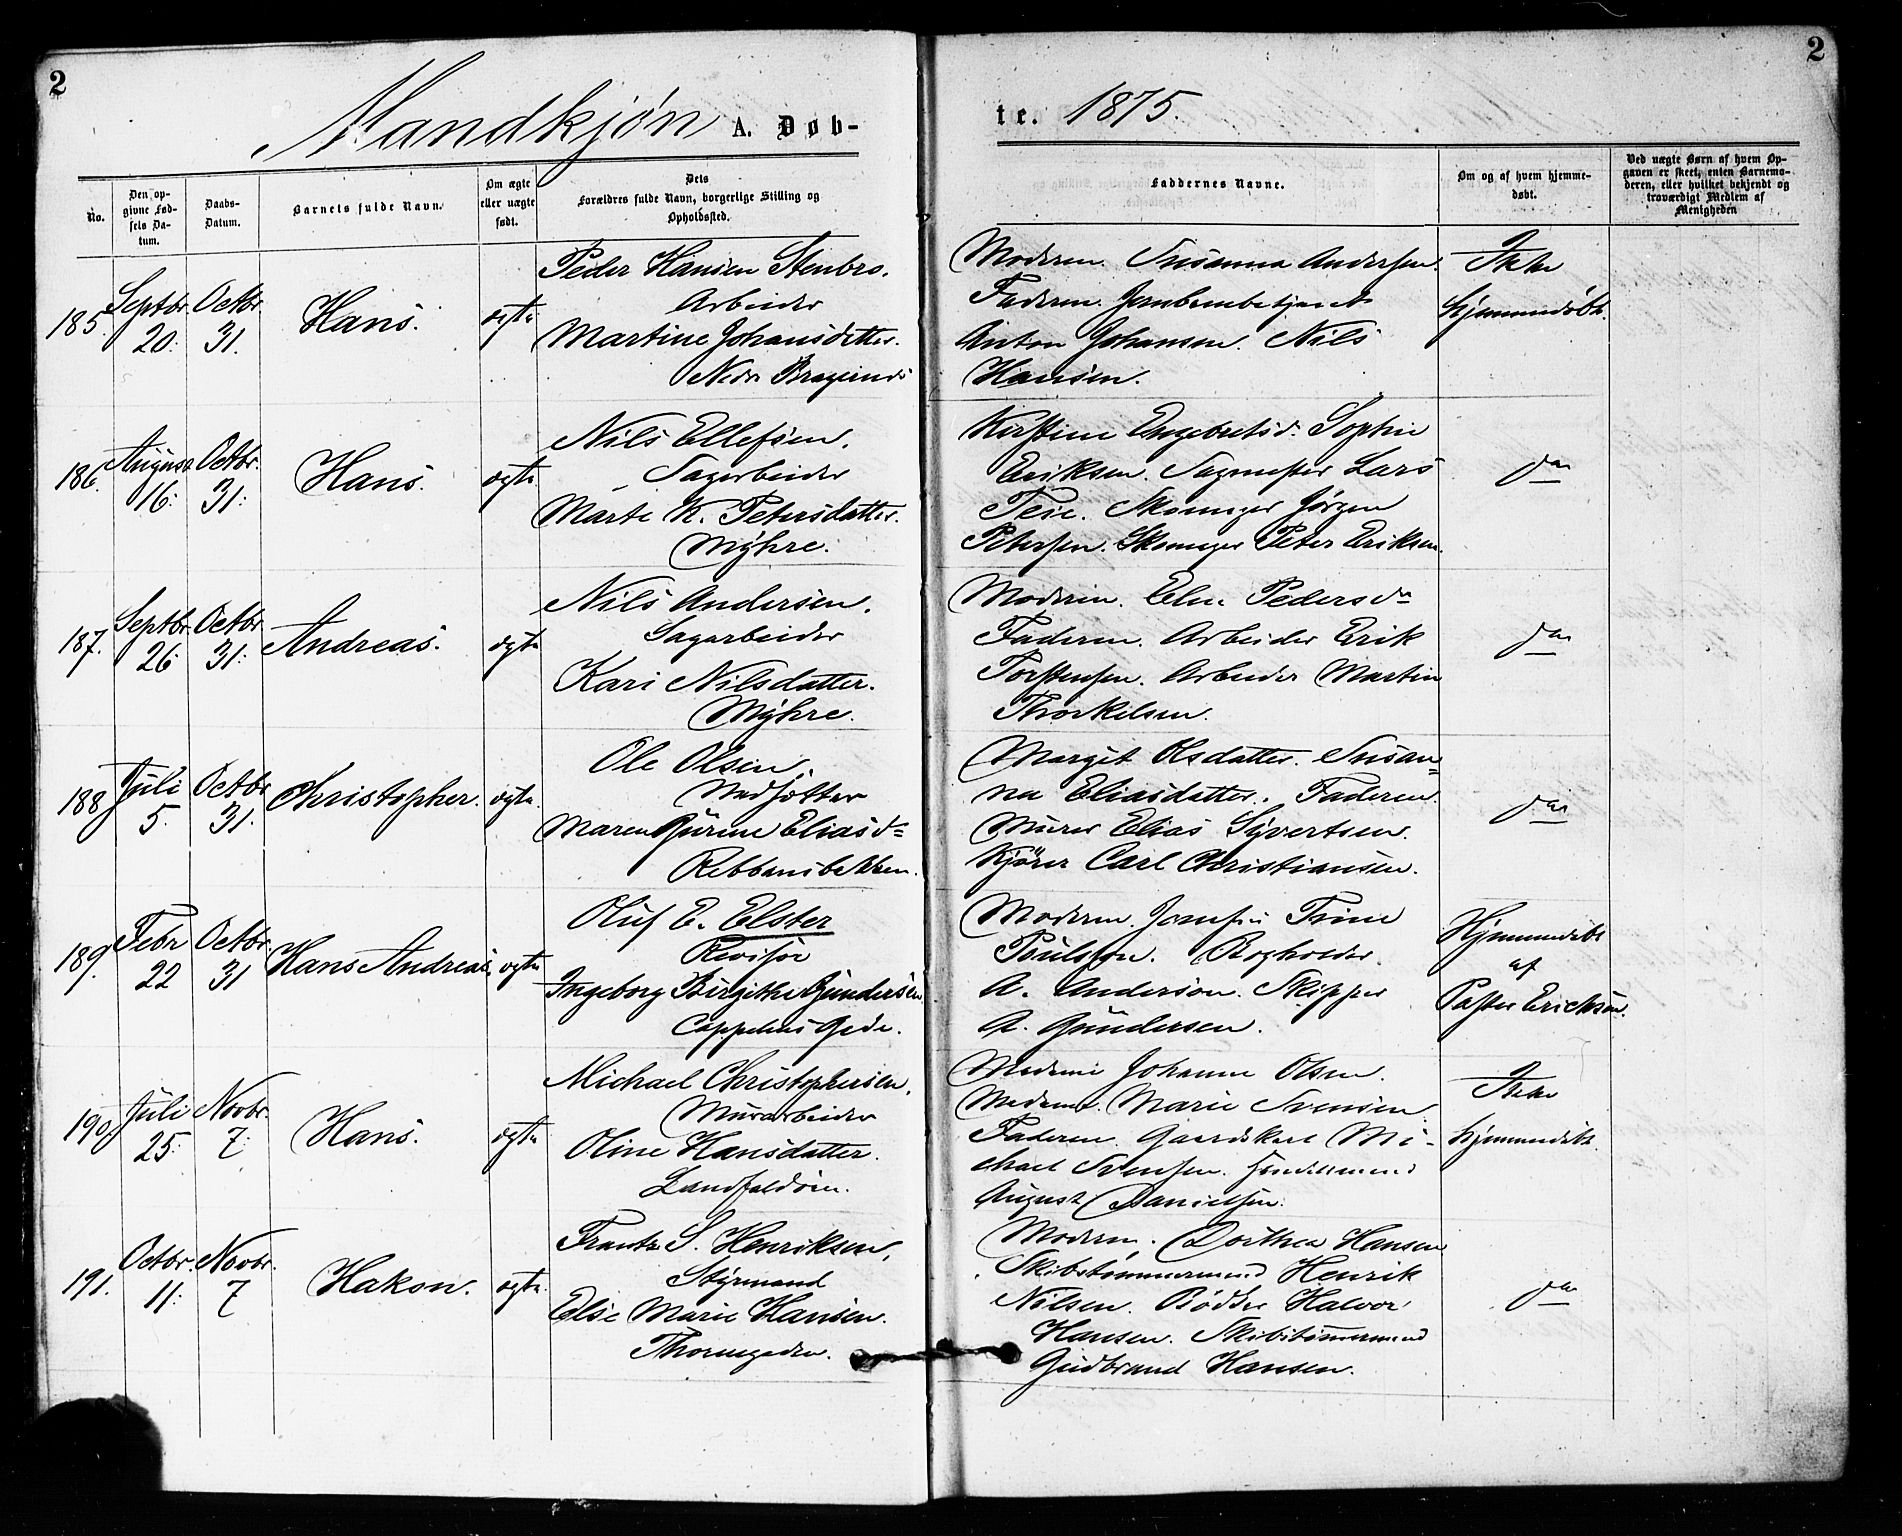 2
Mandkjøn A. Døb-
No.
Den opgivne Fødsels Datum.
Daabs-Datum.
Barnets fulde Navn.
Om ægte eller uægte født.
Dets Forældres fulde Navn, borgerlige Stilling og Opholdssted.
185. Septbr. 20. Octbr. 31. Hans. ægte
Peder Hansen Stenbro.
Arbeider
Martine Johansdatter.
Nedre Bragernes
186. August 16. Octbr. 31. Hans. ægte
Nils Ellefsen.
Sagarbeider
Marte K. Petersdatter.
Myhre.
187. Septbr. 26. Octbr. 31. Andreas. ægte
Nils Andersen.
Sagarbeider
Kari Nilsdatter.
Myhre.
188. Juli 5. Octbr. 31. Christopher. ægte.
Ole Olsen.
Maren Gurine Eliasd=
189. Febr 22 Octbr. 31 Hans Andreas. ægte
Oluf E. Elster
Revisor
Ingeborg Birgithe Gundersen
Cappelens Gade.
190. Juli 25. Novbr. 7. Hans. ægte
Michael Christophersen.
Murarbeider
Oline Hansdatter.
Landfaldøen.
191. Octbr. 11. Novbr. 7 Hakon. ægte.
Frantz S. Henriksen.
Styrmand
Else Marie Hansen.
Thornegaden.
2
te. 1875.
Faddernes Navne.
Om og af hvem hjemmedøbt.
Ved uægte Børn af hvem Opgaven er skeet, enten Barnemoderen, eller hvilket bekjendt og troværdigt Medlem af Menigheden
Moderen. Susanna Andersen. Ikke
Faderen. Jernbanebetjent hjemmedøbt.
Anton Johansen. Nils
Hansen.
Kirstine Engebretsd. Sophie
Eriksen. Sagmester Lars do
Teie. Skomager Jørgen
Petersen. Skomager Peter Eriksen.
Moderen. Elen Pedersdr
Faderen. Arbeider Erik do
Torstensen. Arbeider Martin
Thorkelsen.
Margit Olsdatter. Susan=
na Eliasdatter. Faderen. do
Murer Elias Syvertsen.
Kjører Carl Christiansen.
Moderen. Josefine Trine Hjemmedøbt
Poulsson. Bogholder. af
A. Anderson. Skipper Pastor Erichsen.
A. Gundersen.
Madame Johanne Olsen. Ikke
Madame. Marie Svensen
Faderen. Gaardskarl Mi- hjemmedøbt.
chael Svensen.
August Danielsen.
Moderen. Dorthea Hansen
Skibstømmermand Henrik
Nilsen. Bødker Halvor do
Hansen. Skibstømmermand
Gudbrand Hansen.